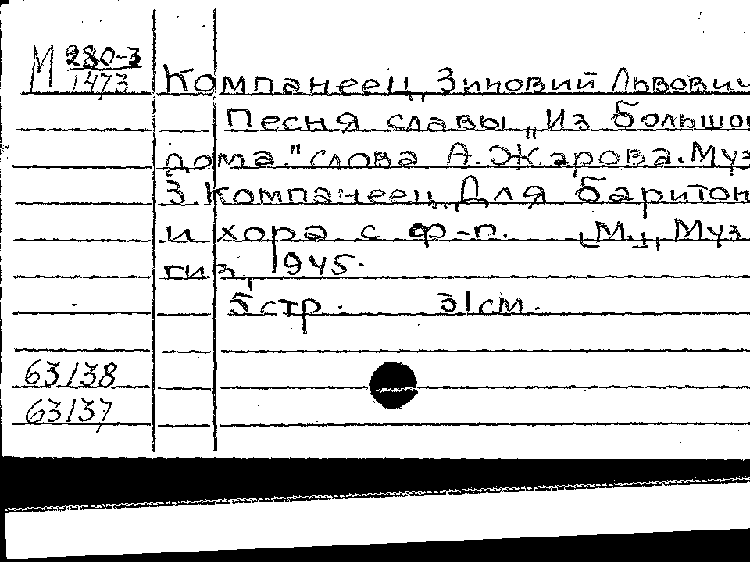 М 280-3
1473
Компанеец, Зиновий Львович
Песня славы „Из большо
дома." слова А. Жарова. Муз
З. Компанеец. Для баритон
и хора с ф-п. [М.], Муз
гиз, 1945.
5 стр. 31 см.
63138
63137